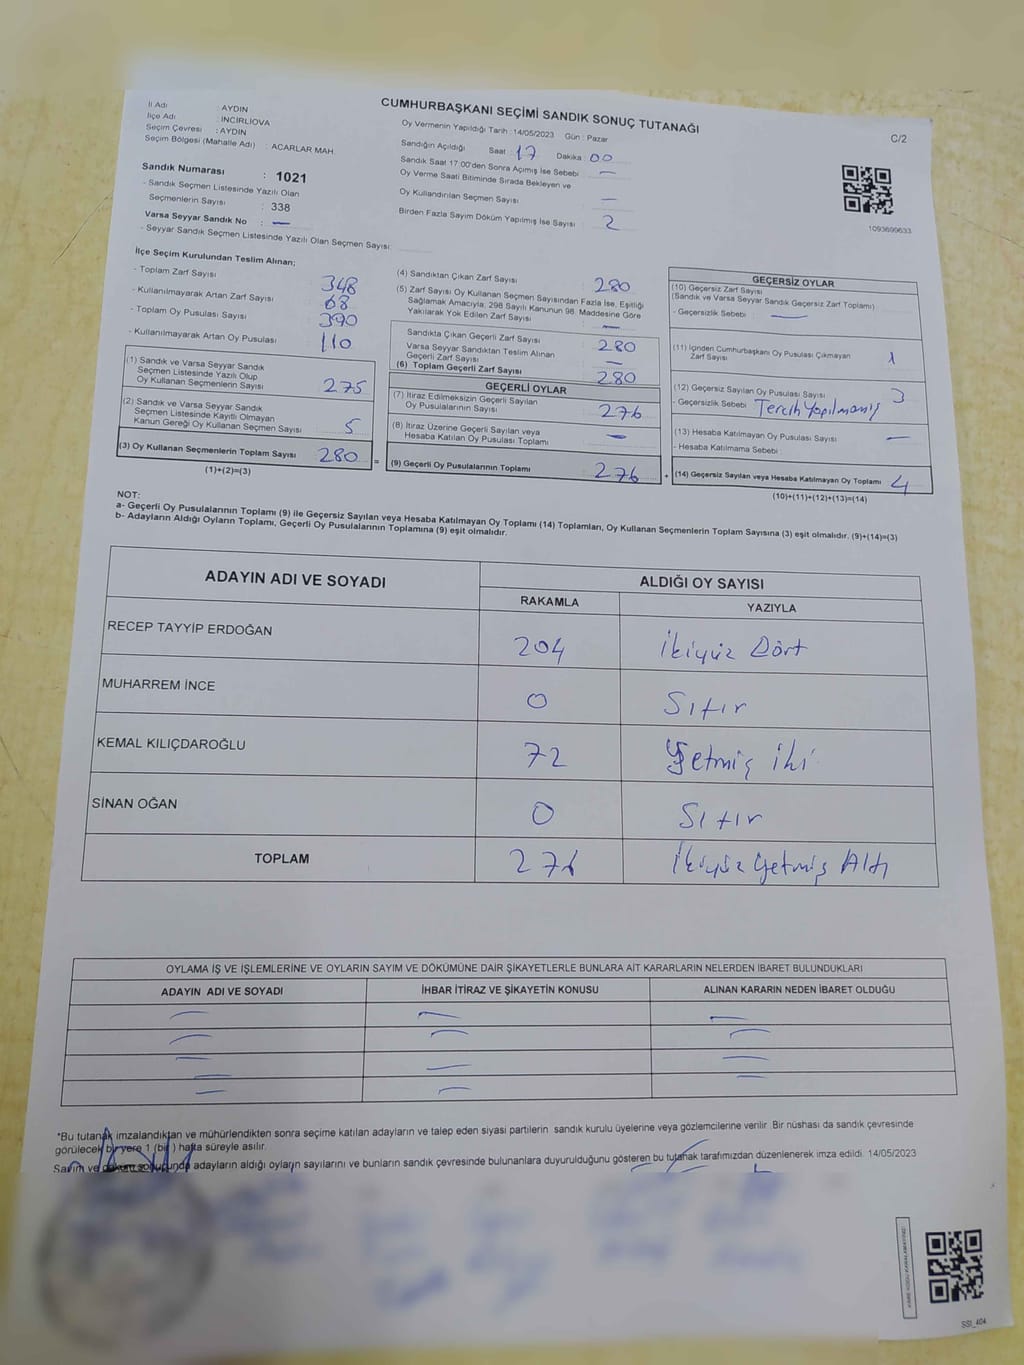 CUMHURBAŞKANI SEÇİMİ SANDIK SONUÇ TUTANAĞI
C/2
İl Adı : AYDIN
İlçe Adı : İNCİRLİOVA
Seçim Çevresi : AYDIN
Seçim Bölgesi (Mahalle Adı) : ACARLAR MAH.
Sandık Numarası : 1021
- Sandık Seçmen Listesinde Yazılı Olan
Seçmenlerin Sayısı : 338
Varsa Seyyar Sandık No : —
- Seyyar Sandık Seçmen Listesinde Yazılı Olan Seçmen Sayısı:
Oy Vermenin Yapıldığı Tarih : 14/05/2023 Gün : Pazar
Sandığın Açıldığı Saat : 17 Dakika : 00
Sandık Saat 17:00'den Sonra Açımış İse Sebebi : —
Oy Verme Saati Bitiminde Sırada Bekleyen ve
Oy Kullandırılan Seçmen Sayısı : —
Birden Fazla Sayım Döküm Yapılmış İse Sayısı : 2
1093699633
İlçe Seçim Kurulundan Teslim Alınan;
- Toplam Zarf Sayısı : 348
- Kullanılmayarak Artan Zarf Sayısı : 68
- Toplam Oy Pusulası Sayısı : 390
- Kullanılmayarak Artan Oy Pusulası : 110
(1) Sandık ve Varsa Seyyar Sandık
Seçmen Listesinde Yazılı Olup
Oy Kullanan Seçmenlerin Sayısı : 275
(2) Sandık ve Varsa Seyyar Sandık
Seçmen Listesinde Kayıtlı Olmayan
Kanun Gereği Oy Kullanan Seçmen Sayısı : 5
(3) Oy Kullanan Seçmenlerin Toplam Sayısı : 280 =
(1)+(2)=(3)
(4) Sandıktan Çıkan Zarf Sayısı : 280
(5) Zarf Sayısı Oy Kullanan Seçmen Sayısından Fazla İse, Eşitliği
Sağlamak Amacıyla, 298 Sayılı Kanunun 98. Maddesine Göre
Yakılarak Yok Edilen Zarf Sayısı : —
Sandıkta Çıkan Geçerli Zarf Sayısı : 280
Varsa Seyyar Sandıktan Teslim Alınan
Geçerli Zarf Sayısı : —
(6) Toplam Geçerli Zarf Sayısı : 280
GEÇERLİ OYLAR
(7) İtiraz Edilmeksizin Geçerli Sayılan
Oy Pusulalarının Sayısı : 276
(8) İtiraz Üzerine Geçerli Sayılan veya
Hesaba Katılan Oy Pusulası Toplamı : —
(9) Geçerli Oy Pusulalarının Toplamı : 276 +
GEÇERSİZ OYLAR
(10) Geçersiz Zarf Sayısı
(Sandık ve Varsa Seyyar Sandık Geçersiz Zarf Toplamı) :
- Geçersizlik Sebebi : —
(11) İçinden Cumhurbaşkanı Oy Pusulası Çıkmayan
Zarf Sayısı : 1
(12) Geçersiz Sayılan Oy Pusulası Sayısı : 3
- Geçersizlik Sebebi : Tercih Yapılmamış
(13) Hesaba Katılmayan Oy Pusulası Sayısı : —
- Hesaba Katılmama Sebebi :
(14) Geçersiz Sayılan veya Hesaba Katılmayan Oy Toplamı : 4
(10)+(11)+(12)+(13)=(14)
NOT:
a- Geçerli Oy Pusulalarının Toplamı (9) ile Geçersiz Sayılan veya Hesaba Katılmayan Oy Toplamı (14) Toplamları, Oy Kullanan Seçmenlerin Toplam Sayısına (3) eşit olmalıdır. (9)+(14)=(3)
b- Adayların Aldığı Oyların Toplamı, Geçerli Oy Pusulalarının Toplamına (9) eşit olmalıdır.
ADAYIN ADI VE SOYADI
ALDIĞI OY SAYISI
RAKAMLA YAZIYLA
RECEP TAYYİP ERDOĞAN 204 İkiyüz Dört
MUHARREM İNCE 0 Sıfır
KEMAL KILIÇDAROĞLU 72 Yetmiş iki
SİNAN OĞAN 0 Sıfır
TOPLAM 276 İkiyüz Yetmiş Altı
OYLAMA İŞ VE İŞLEMLERİNE VE OYLARIN SAYIM VE DÖKÜMÜNE DAİR ŞİKAYETLERLE BUNLARA AİT KARARLARIN NELERDEN İBARET BULUNDUKLARI
ADAYIN ADI VE SOYADI İHBAR İTİRAZ VE ŞİKAYETİN KONUSU ALINAN KARARIN NEDEN İBARET OLDUĞU
— — —
— — —
— — —
— — —
*Bu tutanak imzalandıktan ve mühürlendikten sonra seçime katılan adayların ve talep eden siyasi partilerin sandık kurulu üyelerine veya gözlemcilerine verilir. Bir nüshası da sandık çevresinde
görülecek bir yere 1 (bir) hafta süreyle asılır.
Sayım ve döküm sonucunda adayların aldığı oyların sayılarını ve bunların sandık çevresinde bulunanlara duyurulduğunu gösteren bu tutanak tarafımızdan düzenlenerek imza edildi. 14/05/2023
SSI_404